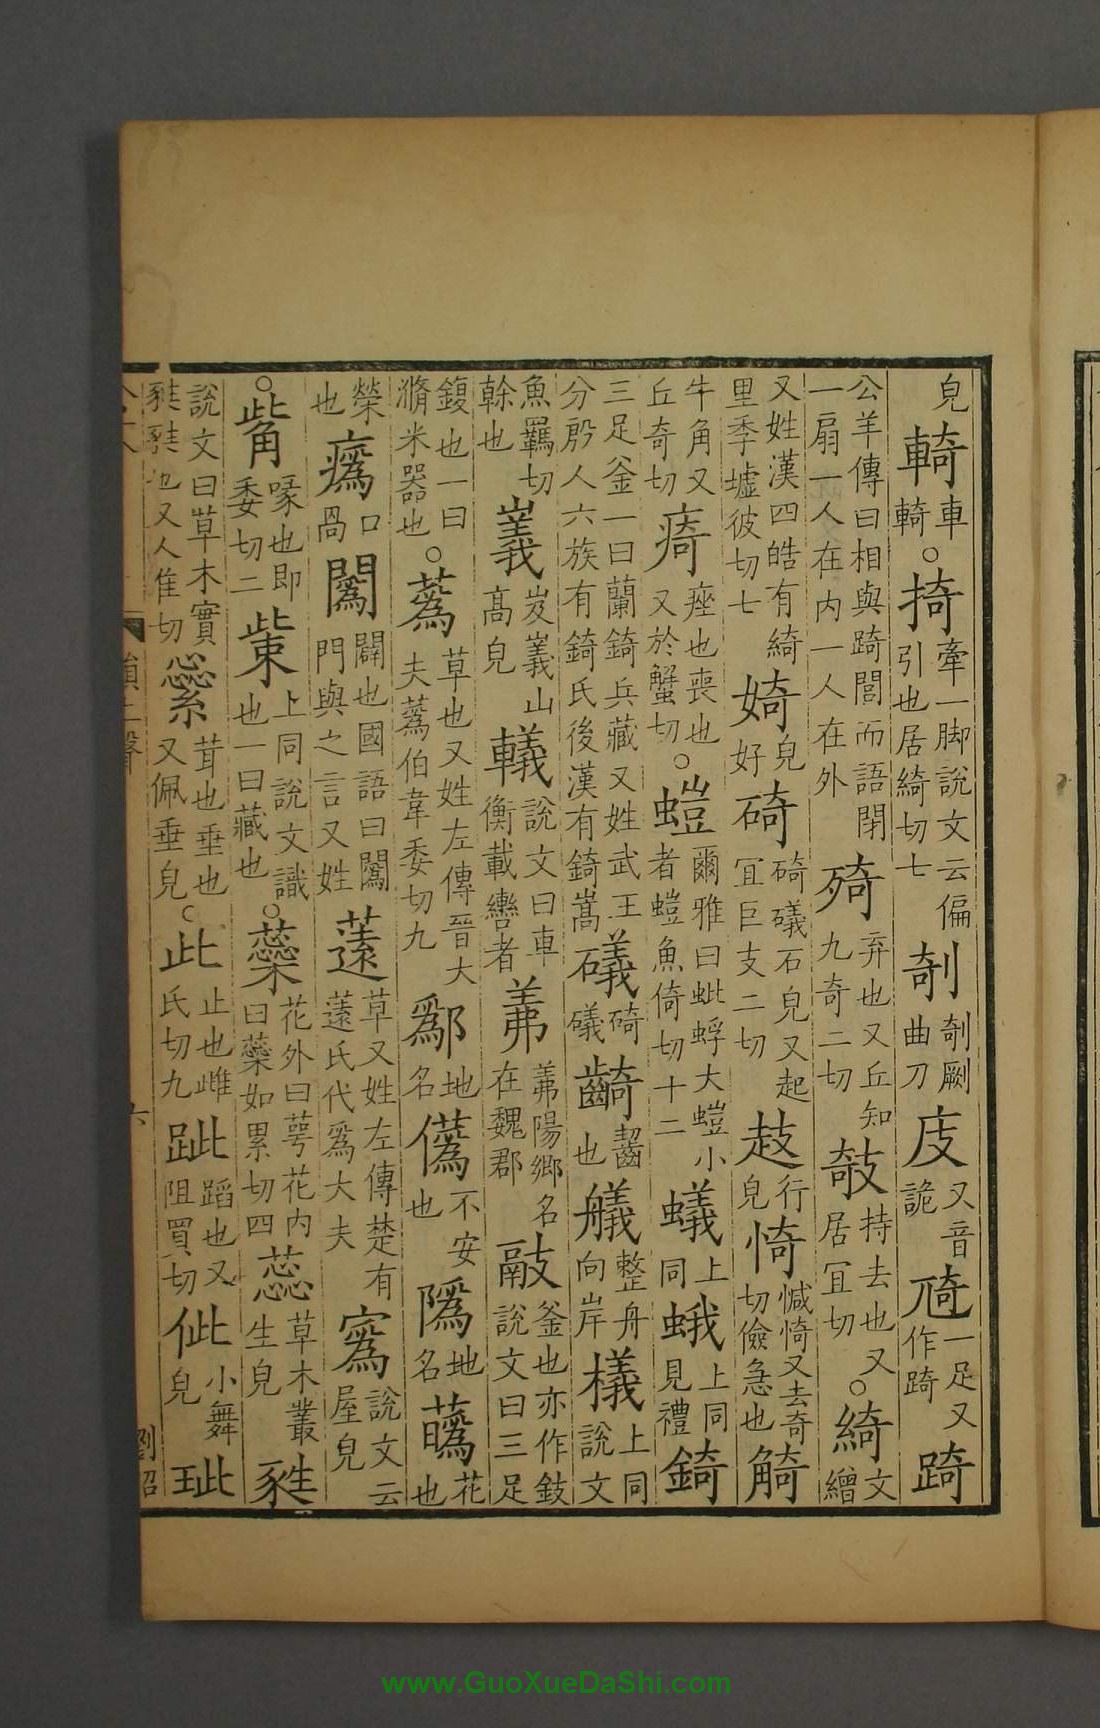 皃䡋車䡋○掎牽一脚說文云偏引也居綺切七剞剞劂曲刀庋又音詭䗁一足又作踦踦
公羊傳曰相與踦閭而語閉一扇一人在內一人在外㱦弃也又丘知九奇二切攲持去也又居宜切○綺文繒
又姓漢四皓有綺里季墟彼切七婍皃好碕碕礒石皃又起宜巨支二切㩻行皃㥓㥓又去奇切儉急也觭
牛角又丘奇切㾨痤也喪也又於蟹切○螘爾雅曰蚍蜉大螘小者螘魚倚切十二蟻上同蛾上同見禮錡
三足釜一曰蘭錡兵藏又姓武王分殷人六族有錡氏後漢有錡嵩礒碕礒齮齧也艤整舟向岸檥上同說文
魚羈切榦也㠖岌㠖山高皃轙說文曰車衡載轡者羛羛陽鄉名在魏郡䰙釜也亦作䤲說文曰三足
鍑也一曰滫米器也○蔿草也又姓左傳晉大夫蔿伯韋委切九鄬地名㒟不安也隖地名蘤花也
榮也㾻口咼闖闢也國語曰闖門與之言又姓薳草又姓左傳楚有薳氏代爲大夫寪說文云屋皃
○觜喙也即委切二㭰上同說文識也一曰藏也○蘂花外曰萼花內曰蘂如累切四蕊草木叢生皃甤
說文曰草木實甤甤也又人隹切繠茸也垂也又佩垂皃○此止也雌氏切九跐蹈也又阻買切佌小舞皃玼
劉昭
www.GuoXueDaShi.com